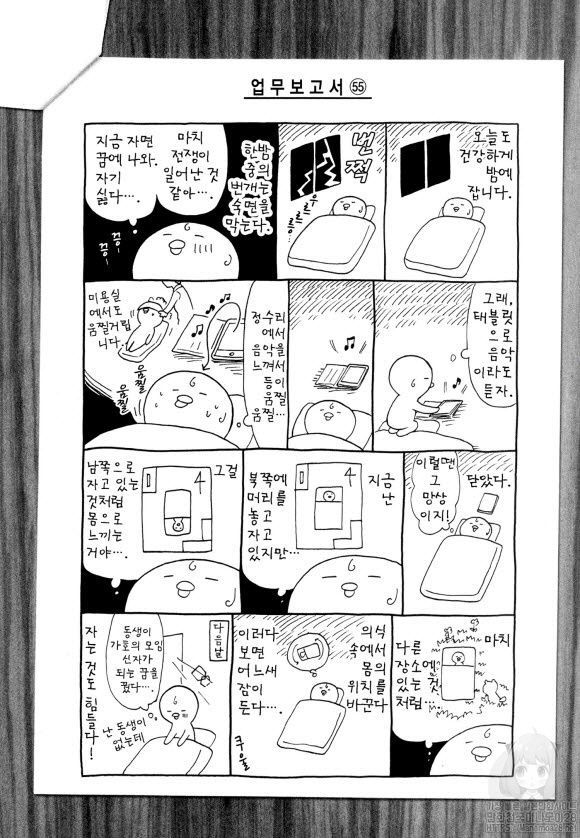 업무보고서 55
오늘도
건강하게
밤에
잡니다.
번쩍
우르르릉
한밤
중의
번개는
숙면을
막는다.
마치
전쟁이
일어난 것
같아….
지금 자면
꿈에 나와.
자기
싫다….
끙—
끙—
그래,
태블릿으로
음악이라도
듣자.
정수리
에서
음악을
느껴서
등이
움찔
움찔…
미용실
에서도
움찔거립
니다.
움찔
움찔
닫았다.
이럴땐
그
망상
이지!
지금
난
북쪽에
머리를
놓고
자고
있지만…
그걸
남쪽으로
자고 있는
것처럼
몸으로
느끼는
거야….
마치
다른
장소에
있는 것
처럼…
의식
속에서
몸의
위치를
바꾼다
이러다
보면
어느새
잠이
든다…
쿠울
다음날
동생이
가호의 모임
신자가
되는 꿈을
꿨다….
난 동생이
없는데
자는 것도 힘들다!